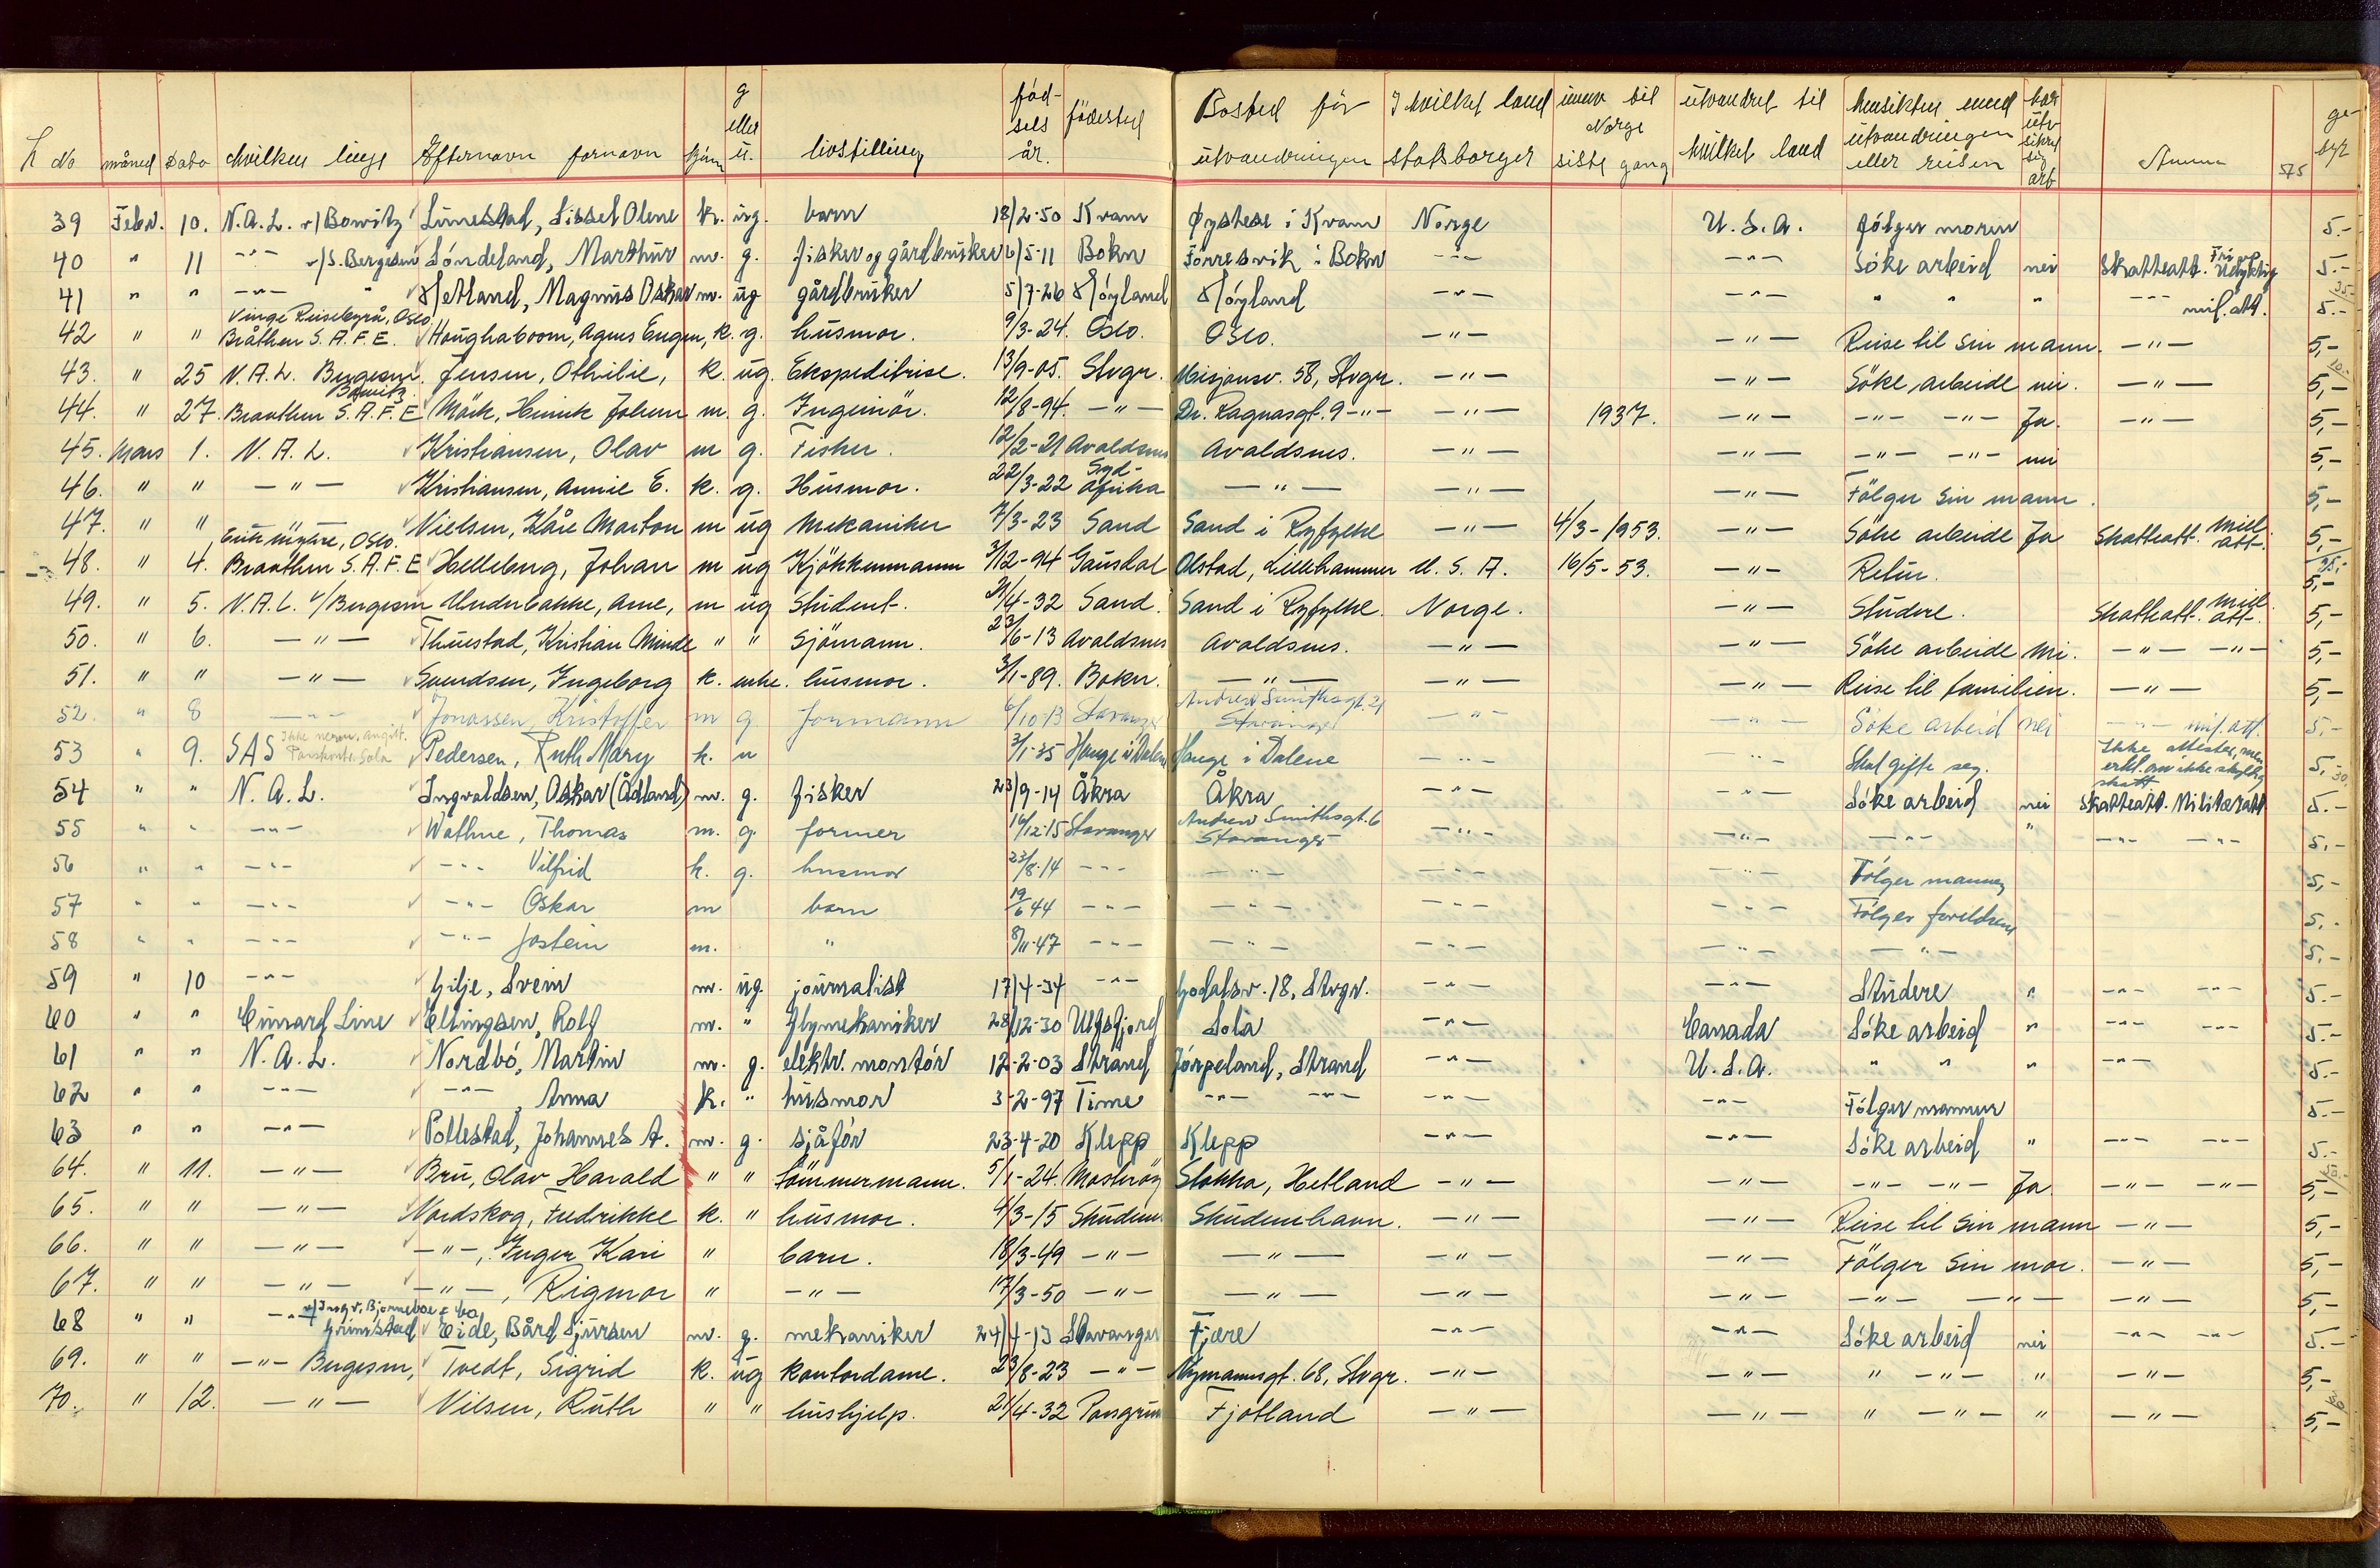 L No måned Dato Hvilken linje Efternavn fornavn kjønn g eller u. livsstilling fødsels år. fødested Bosted før utvandringen I hvilket land statsborger innv til Norge siste gang utvandret til hvilket land hensikten med utvandringen eller reisen har utv sikret sig arb Anm 575 gebyr
39 Febr. 10. N.A.L. v/Bowitz Limestad, Lissel Olene k. ug. barn 18/2-50 Kvam Øystese i Kvam Norge U.S.A. følger moren 5.-
40 " 11 -"- v/S. Bergesen Søndeland, Marthur m. g. fisker og gårdbruker 6/5-11 Bokn Førresvik i Bokn -"- -"- Søke arbeid nei Skatteatt. 5.-
41 " " -"- " Hetland, Magnus Oskar m. ug gårdbruker 5/7-26 Høyland Høyland -"- -"- " " " -"- mil. att. 5.-
42 " " Vinge Reisebyrå, Oslo Bråthen S.A.F.E. Houghaboom, Agnes Eugen, k. g. husmor. 9/3-24. Oslo. Oslo. -"- -"- Reise til sin mann. -"- 5,-
43. " 25 N.A.L. Bergesen. Jensen, Othilie, k. ug. Ekspeditrise. 13/9-05. Stvgr. Misjonsv. 58, Stvgr. -"- -"- Søke arbeide nei. -"- 5,-
44. " 27. Braathen Bowitz S.A.F.E Mørk, Henrik Johan m. g. Ingeniør. 12/8-94. -"- Dr. Ragnasgt. 9 -"- -"- 1937. -"- -"- -"- Ja. -"- 5,-
45. Mars 1. N.A.L. Kristiansen, Olav m g. Fisker. 12/2-21 Avaldsnes Avaldsnes. -"- -"- -"- -"- nei 5,-
46. " " -"- Kristiansen, Annie E. k. g. Husmor. 22/3-22 Syd-Afrika -"- -"- -"- Følger sin mann. 5,-
47. " " Nielsen, Kåre Marton m ug Mekaniker 7/3-23 Sand Sand i Ryfylke -"- 4/3-1953. -"- Søke arbeide Ja Skatteatt. mil att. 5,-
48. " 4. Oslo. Braathen S.A.F.E Helleberg, Johan m ug Kjøkkenmann 3/12-94 Gausdal Olstad, Lillehammer U.S.A. 16/5-53. -"- Retur. 5,-
49. " 5. N.A.L. v/Bergesen Underbakke, Arne, m ug Student. 21/4-32 Sand. Sand i Ryfylke. Norge. -"- Studere. Skatteatt. mil. att. 5,-
50. " 6. -"- Thuestad, Kristian Minde " " Sjømann. 23/6-13 Avaldsnes Avaldsnes. -"- -"- Søke arbeide Nei. -"- -"- 5,-
51. " " -"- Svendsen, Ingeborg k. enke. husmor. 3/1-89. Bokn. -"- -"- -"- Reise til familien. -"- 5,-
52. " 8 -"- Jonassen, Kristoffer m g. formann 6/10-13 Stavanger Andrew Smithsgt. 21 Stavanger -"- -"- Søke arbeid nei -"- mil. att. 5,-
53 " 9. SAS Ikke nærm. angitt. Sola Pedersen, Ruth Mary k. u 3/1-35 Hauge i Dalene Hauge i Dalene -"- -"- Skal gifte seg. Ikke attester, men erkl. om ikke skyldig skatt 5,-
54 " " N.A.L. Ingvaldsen, Oskar (Ådland) m. g. fisker 23/9-14 Åkra Åkra -"- -"- Søke arbeid nei Skatteatt. Militæratt 5.-
55 " " -"- Wathne, Thomas m. g. former 16/12-15 Stavanger Andrew Smithsgt. 6 Stavanger -"- -"- -"- " -"- -"- 5,-
56 " " -"- -"- Vilfrid k. g. husmor 23/8-14 -"- -"- -"- Følger mannen 5,-
57 " " -"- -"- Oskar m barn 19/6 44 -"- -"- -"- -"- Følger foreldrene 5,-
58 " " -"- -"- Jostein m. " 8/11-47 -"- -"- -"- -"- -"- 5,-
59 " 10 -"- Gilje, Svein m. ug. journalist 17/4-34 -"- Godalsv. 18, Stvgr. -"- -"- Studere " -"- -"- 5.-
60 " " Cunard Line Ellingsen, Rolf m. " flymekaniker 28/12-30 Ulfsfjord Sola -"- Canada Søke arbeid " -"- -"- 5.-
61 " " N.A.L. Nordbø, Martin m. g. elektr. montør 12-2-03 Strand Jørpeland, Strand -"- U.S.A. " " " -"- 5.-
62 " " -"- -"-, Anna k. " husmor 3-2-97 Time -"- -"- -"- -"- Følger mannen 5.-
63 " " -"- Pollestad, Johannes A. m. g. sjåfør 23-4-20 Klepp Klepp -"- -"- Søke arbeid " -"- -"- 5.-
64. " 11. -"- Bru, Olav Harald " " tømmermann. 5/1-24. Mosterøy Stokka, Hetland -"- -"- -"- -"- Ja -"- -"- 5,-
65. " " -"- Nordskog, Fredrikke k. " husmor. 4/3-15 Skudenes Skudeneshavn. -"- -"- Reise til sin mann -"- 5,-
66. " " -"- -"-, Inger Kari " barn. 18/3-49 -"- -"- -"- -"- Følger sin mor. -"- 5,-
67. " " -"- -"-, Rigmor " -"- 17/3-50 -"- -"- -"- -"- -"- -"- -"- 5,-
68 " " -"- v/Ingv. Bjørneboe & Co Grimstad Eide, Bård Sjursen m. g. mekaniker 24/4-13 Stavanger Fjære -"- -"- Søke arbeid nei -"- -"- 5.-
69. " " -"- Bergesen, Tvedt, Sigrid k. ug kontordame. 23/8-23 -"- Nymannsgt. 68, Stvgr. -"- -"- " -"- " -"- 5,-
70. " 12. -"- Nilsen, Ruth " " hushjelp. 21/4-32 Porsgrunn Fjotland -"- -"- " -"- " -"- 5,-